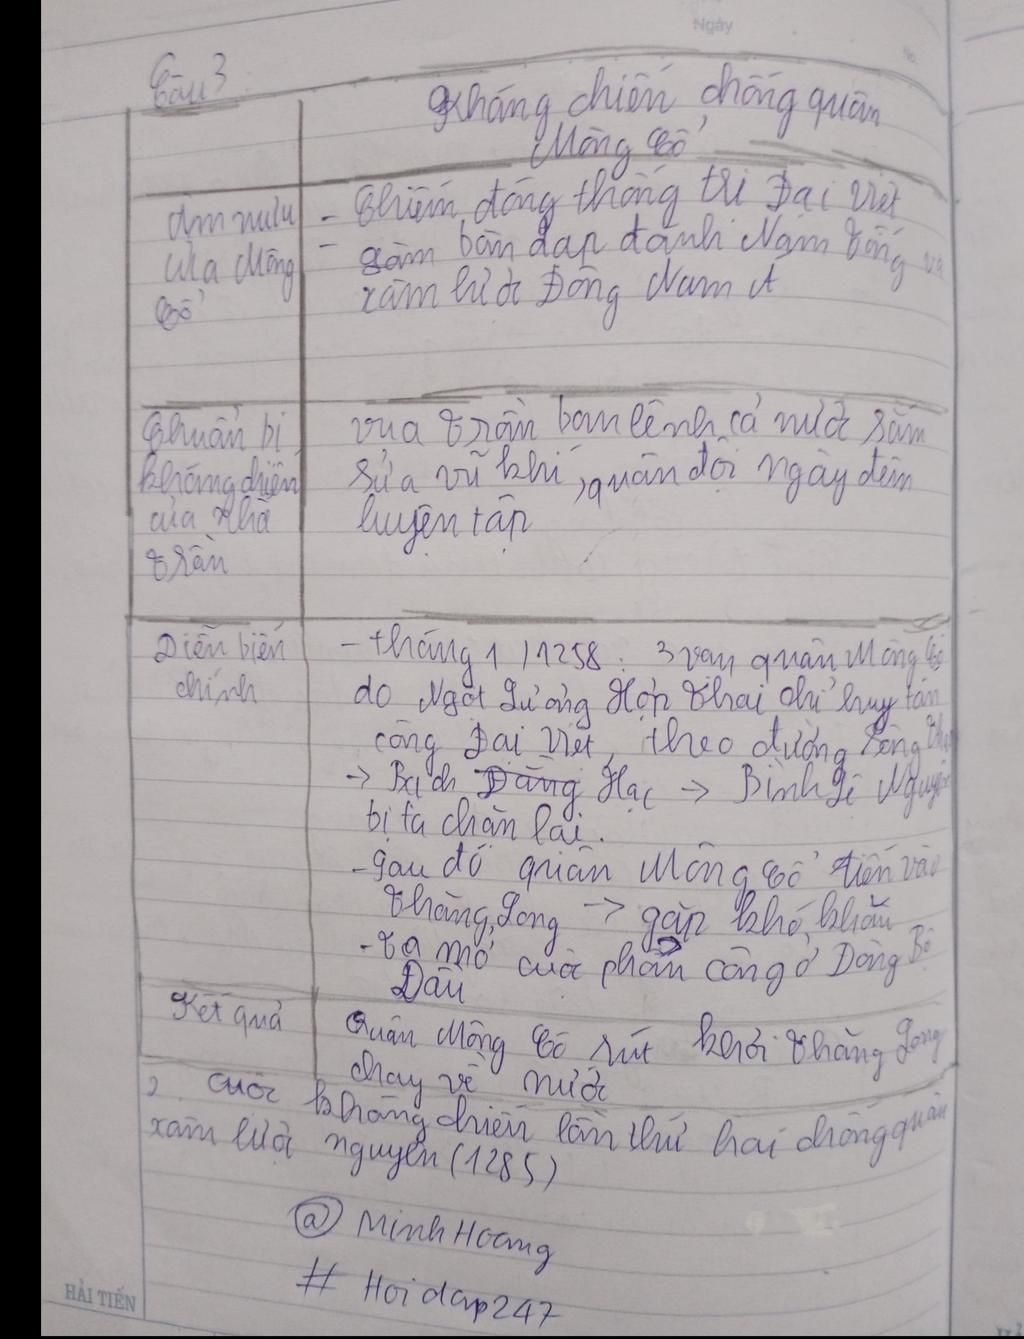 Ngày
No.
Câu 3
Kháng chiến chống quân
Mông Cổ
Âm mưu
của Mông
Cổ
- Chiếm đóng thống trị Đại Việt
- Làm bàn đạp đánh Nam Tống và
xâm lược Đông Nam Á
Chuẩn bị
kháng chiến
của nhà
Trần
vua Trần ban lệnh cả nước sắm
sửa vũ khí, quân đội ngày đêm
luyện tập
Diễn biến
chính
- tháng 1/1258: 3 vạn quân Mông Cổ
do Ngột Lương Hợp Thai chỉ huy tấn
công Đại Việt, theo đường sông
-> Bạch Hạc -> Bình Lệ Nguyên
bị ta chặn lại.
- Sau đó quân Mông Cổ tiến vào
Thăng Long -> gặp khó khăn
- Ta mở cuộc phản công ở Đông Bộ
Đầu
Kết quả
Quân Mông Cổ rút khỏi Thăng Long
chạy về nước
2. Cuộc kháng chiến lần thứ hai chống quân
xâm lược nguyên (1285)
@ Minh Hoang
# Hoidap247
HẢI TIẾN